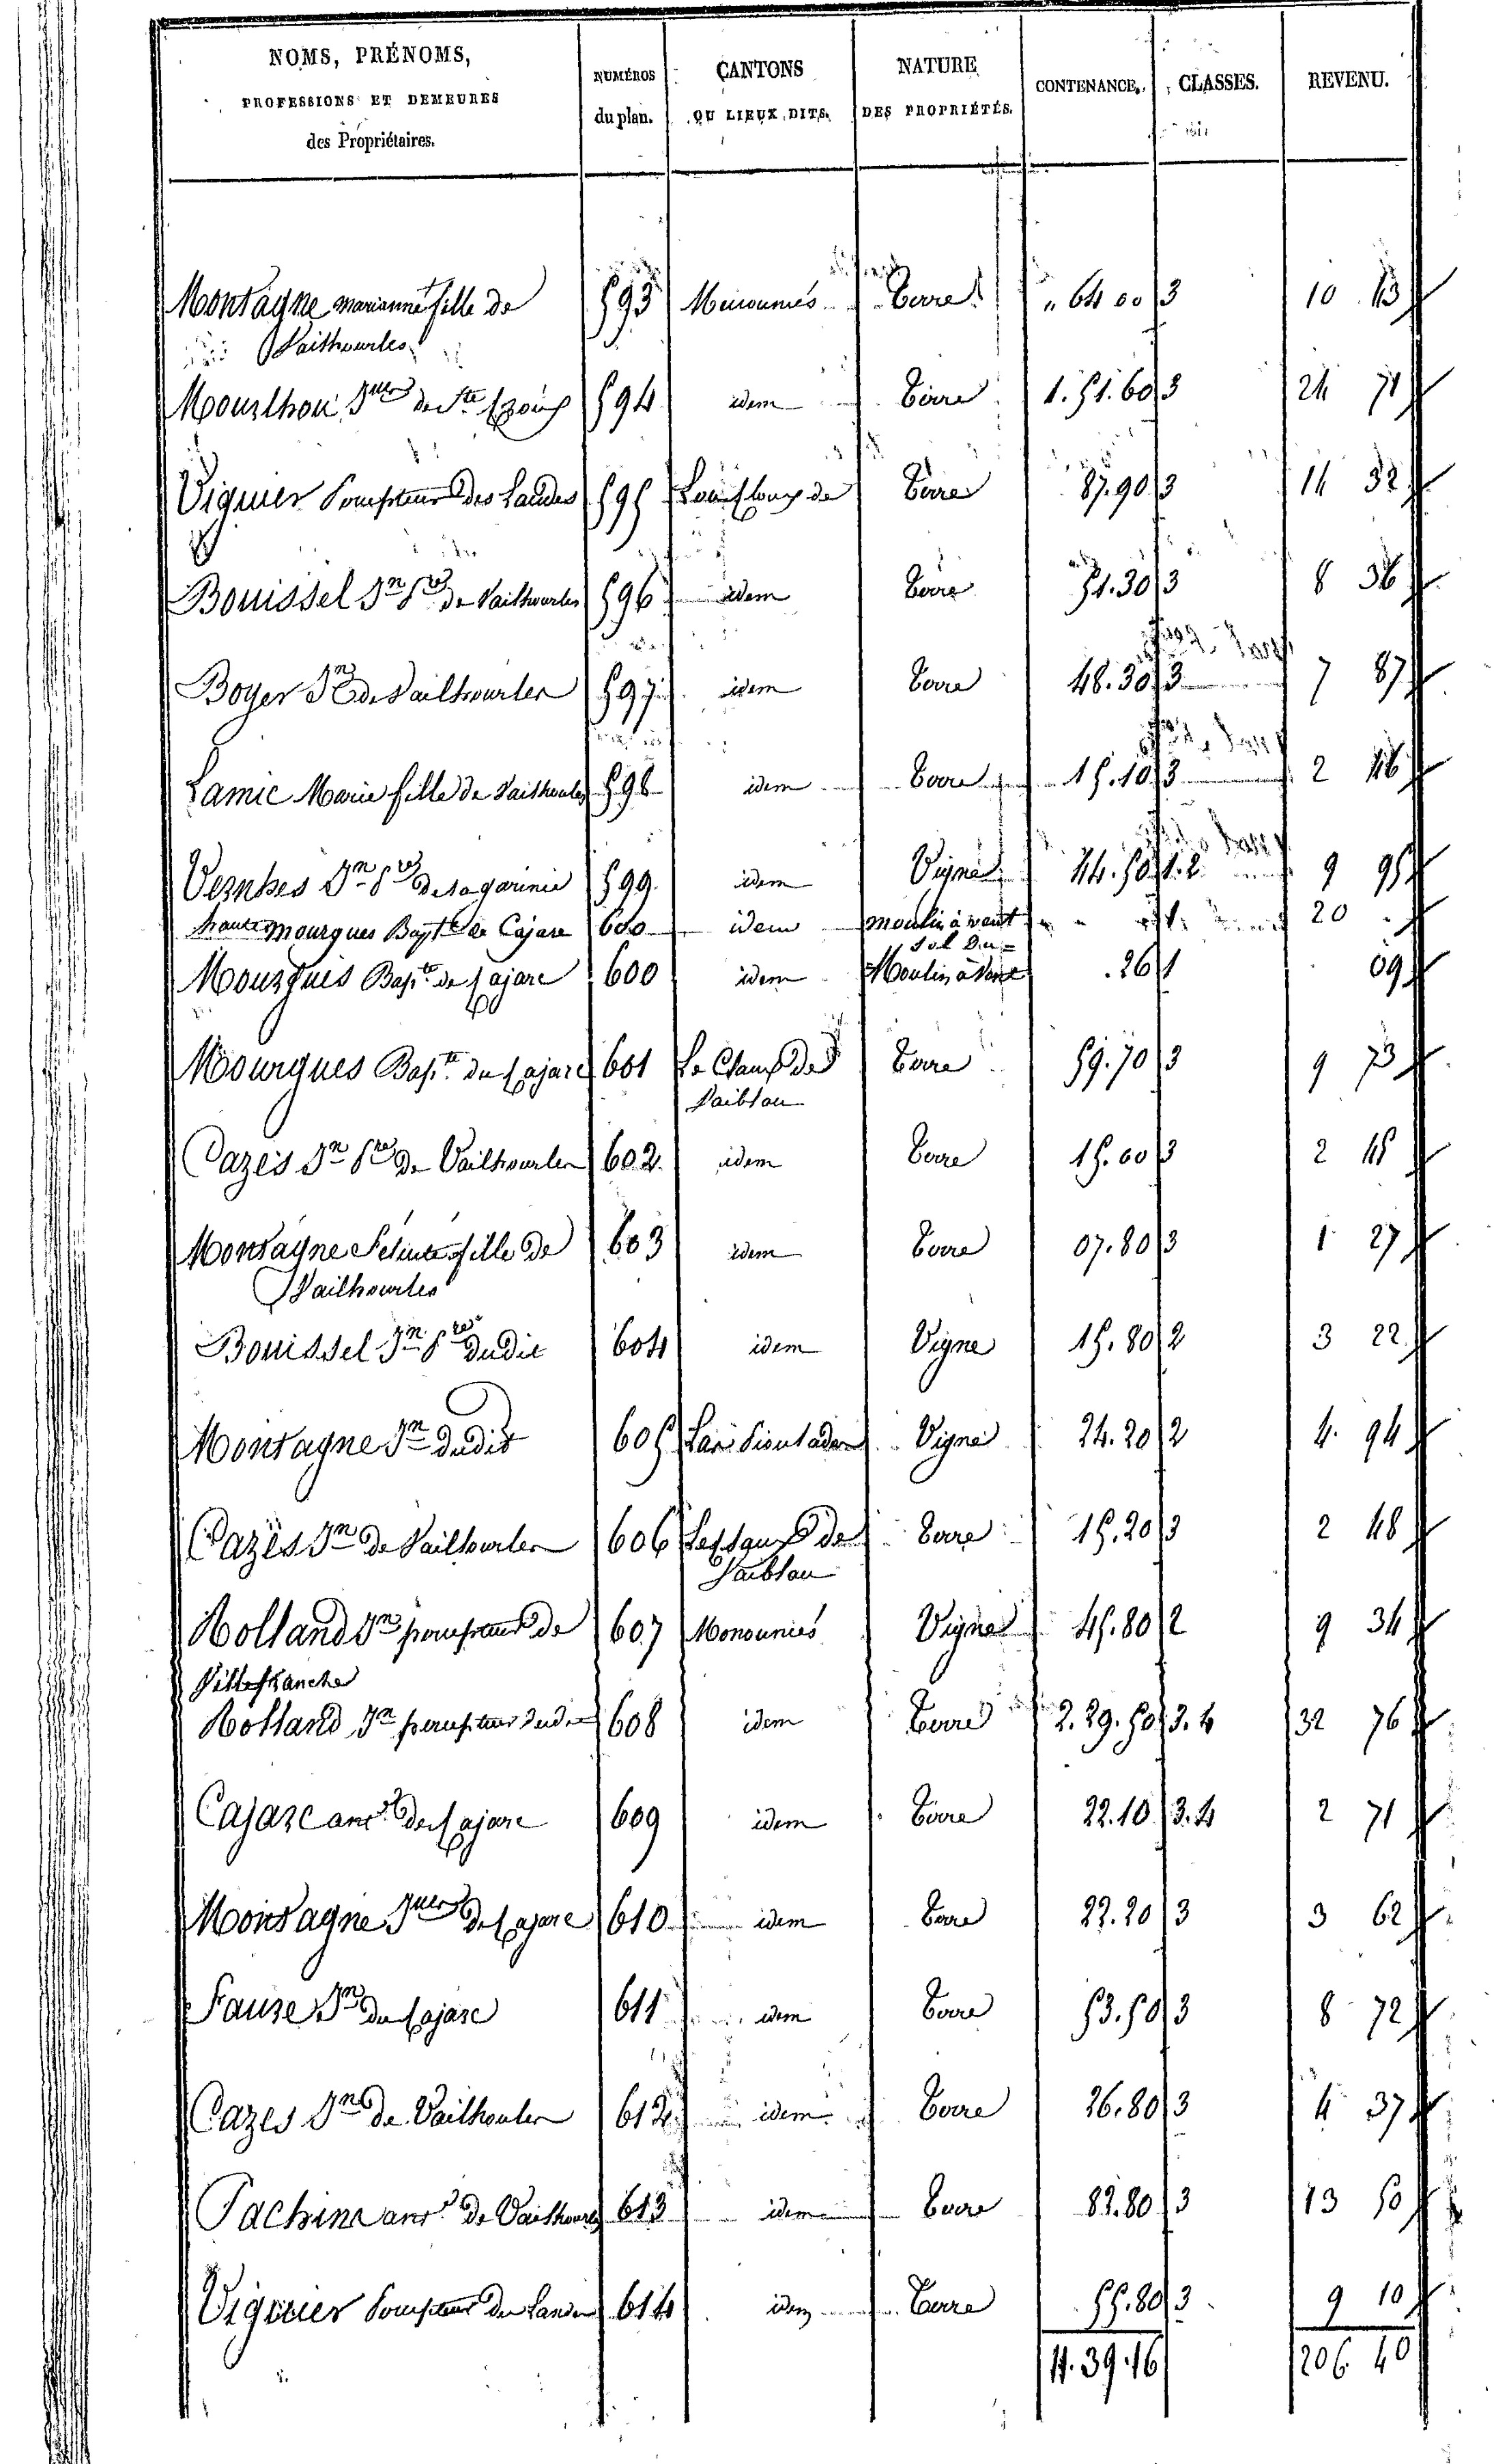 NOMS, PRÉNOMS, PROFESSIONS ET DEMEURES des Propriétaires. NUMÉROS du plan. CANTONS OU LIEUX DITS. NATURE DES PROPRIÉTÉS. CONTENANCE. CLASSES. REVENU.
Montagne marianne fille de 593 Terre 64 00 3 10 43
Vailhourles
594 idem Terre 1. 51. 60 3 24 71
Viguier Percepteur des Landes 595 Terre 87. 90 3 14 32
Bouissel Jn Pre de Vailhourles 596 idem Terre 51. 30 3 8 36
Boyer Jn de Vailhourles 597 idem Terre 48. 30 3 7 87
Lamic Marie fille de Vailhourles 598 idem Terre 15. 10 3 2 46
Vernhes Jn Pre de la garinie 599 idem Vigne 44. 50 1. 2 9 95
haute mourgues Bapte de Cajare 600 idem moulin à vent 20
sol du
Mourgues Bapte de Cajarc 600 idem Moulin à Vent . 26 1 09
Mourgues Bapte de Cajarc 601 Le Champ de Terre 59. 70 3 9 73
Vaiblau
Cazes Jn Pre de Vailhourles 602 idem Terre 15. 00 3 2 45
Montagne fille de 603 idem Terre 07. 80 3 1 27
Vailhourles
Bouissel Jn Pre dudit 604 idem Vigne 15. 80 2 3 22
Montagne Jn dudit 605 Vigne 24. 20 2 4. 94
Cazes Jn de Vailhourles 606 de Terre 15. 20 3 2 48
Vaiblau
Rolland Jn percepteur de 607 Vigne 45. 80 2 9 34
Villefranche
Rolland Jn percepteur dudit 608 idem Terre 2. 29. 50 3. 4 32 76
Cajarc de Cajarc 609 idem Terre 22. 10 3. 4 2 71
Montagne de Cajarc 610 idem Terre 22. 20 3 3 62
Fause Jn de Cajarc 611 idem Terre 53. 50 3 8 72
Cazes Jn de Vailhourles 612 idem Terre 26. 80 3 4 37
Pachins de Vailhourles 613 idem Terre 82. 80 3 13 50
Viguier Percepteur des Landes 614 idem Terre 55. 80 3 9 10
11. 39. 16 206 40